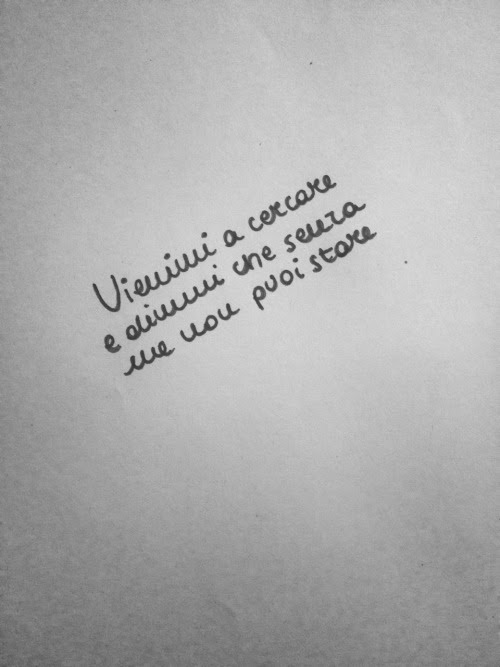 Vienimi a cercare
e dimmi che senza
me non puoi stare